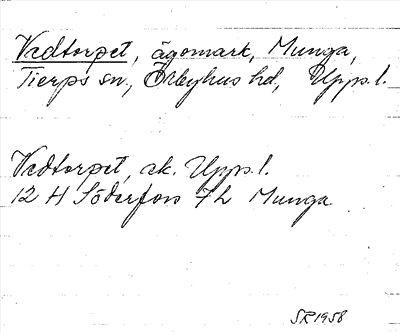 Vedtorpet, ägomark, Munga,
Tierps sn, Örbyhus hd, Upps. l.
Vedtorpet, ek. Upps. l.
12 H Söderfors 7 h Munga
SR 1958